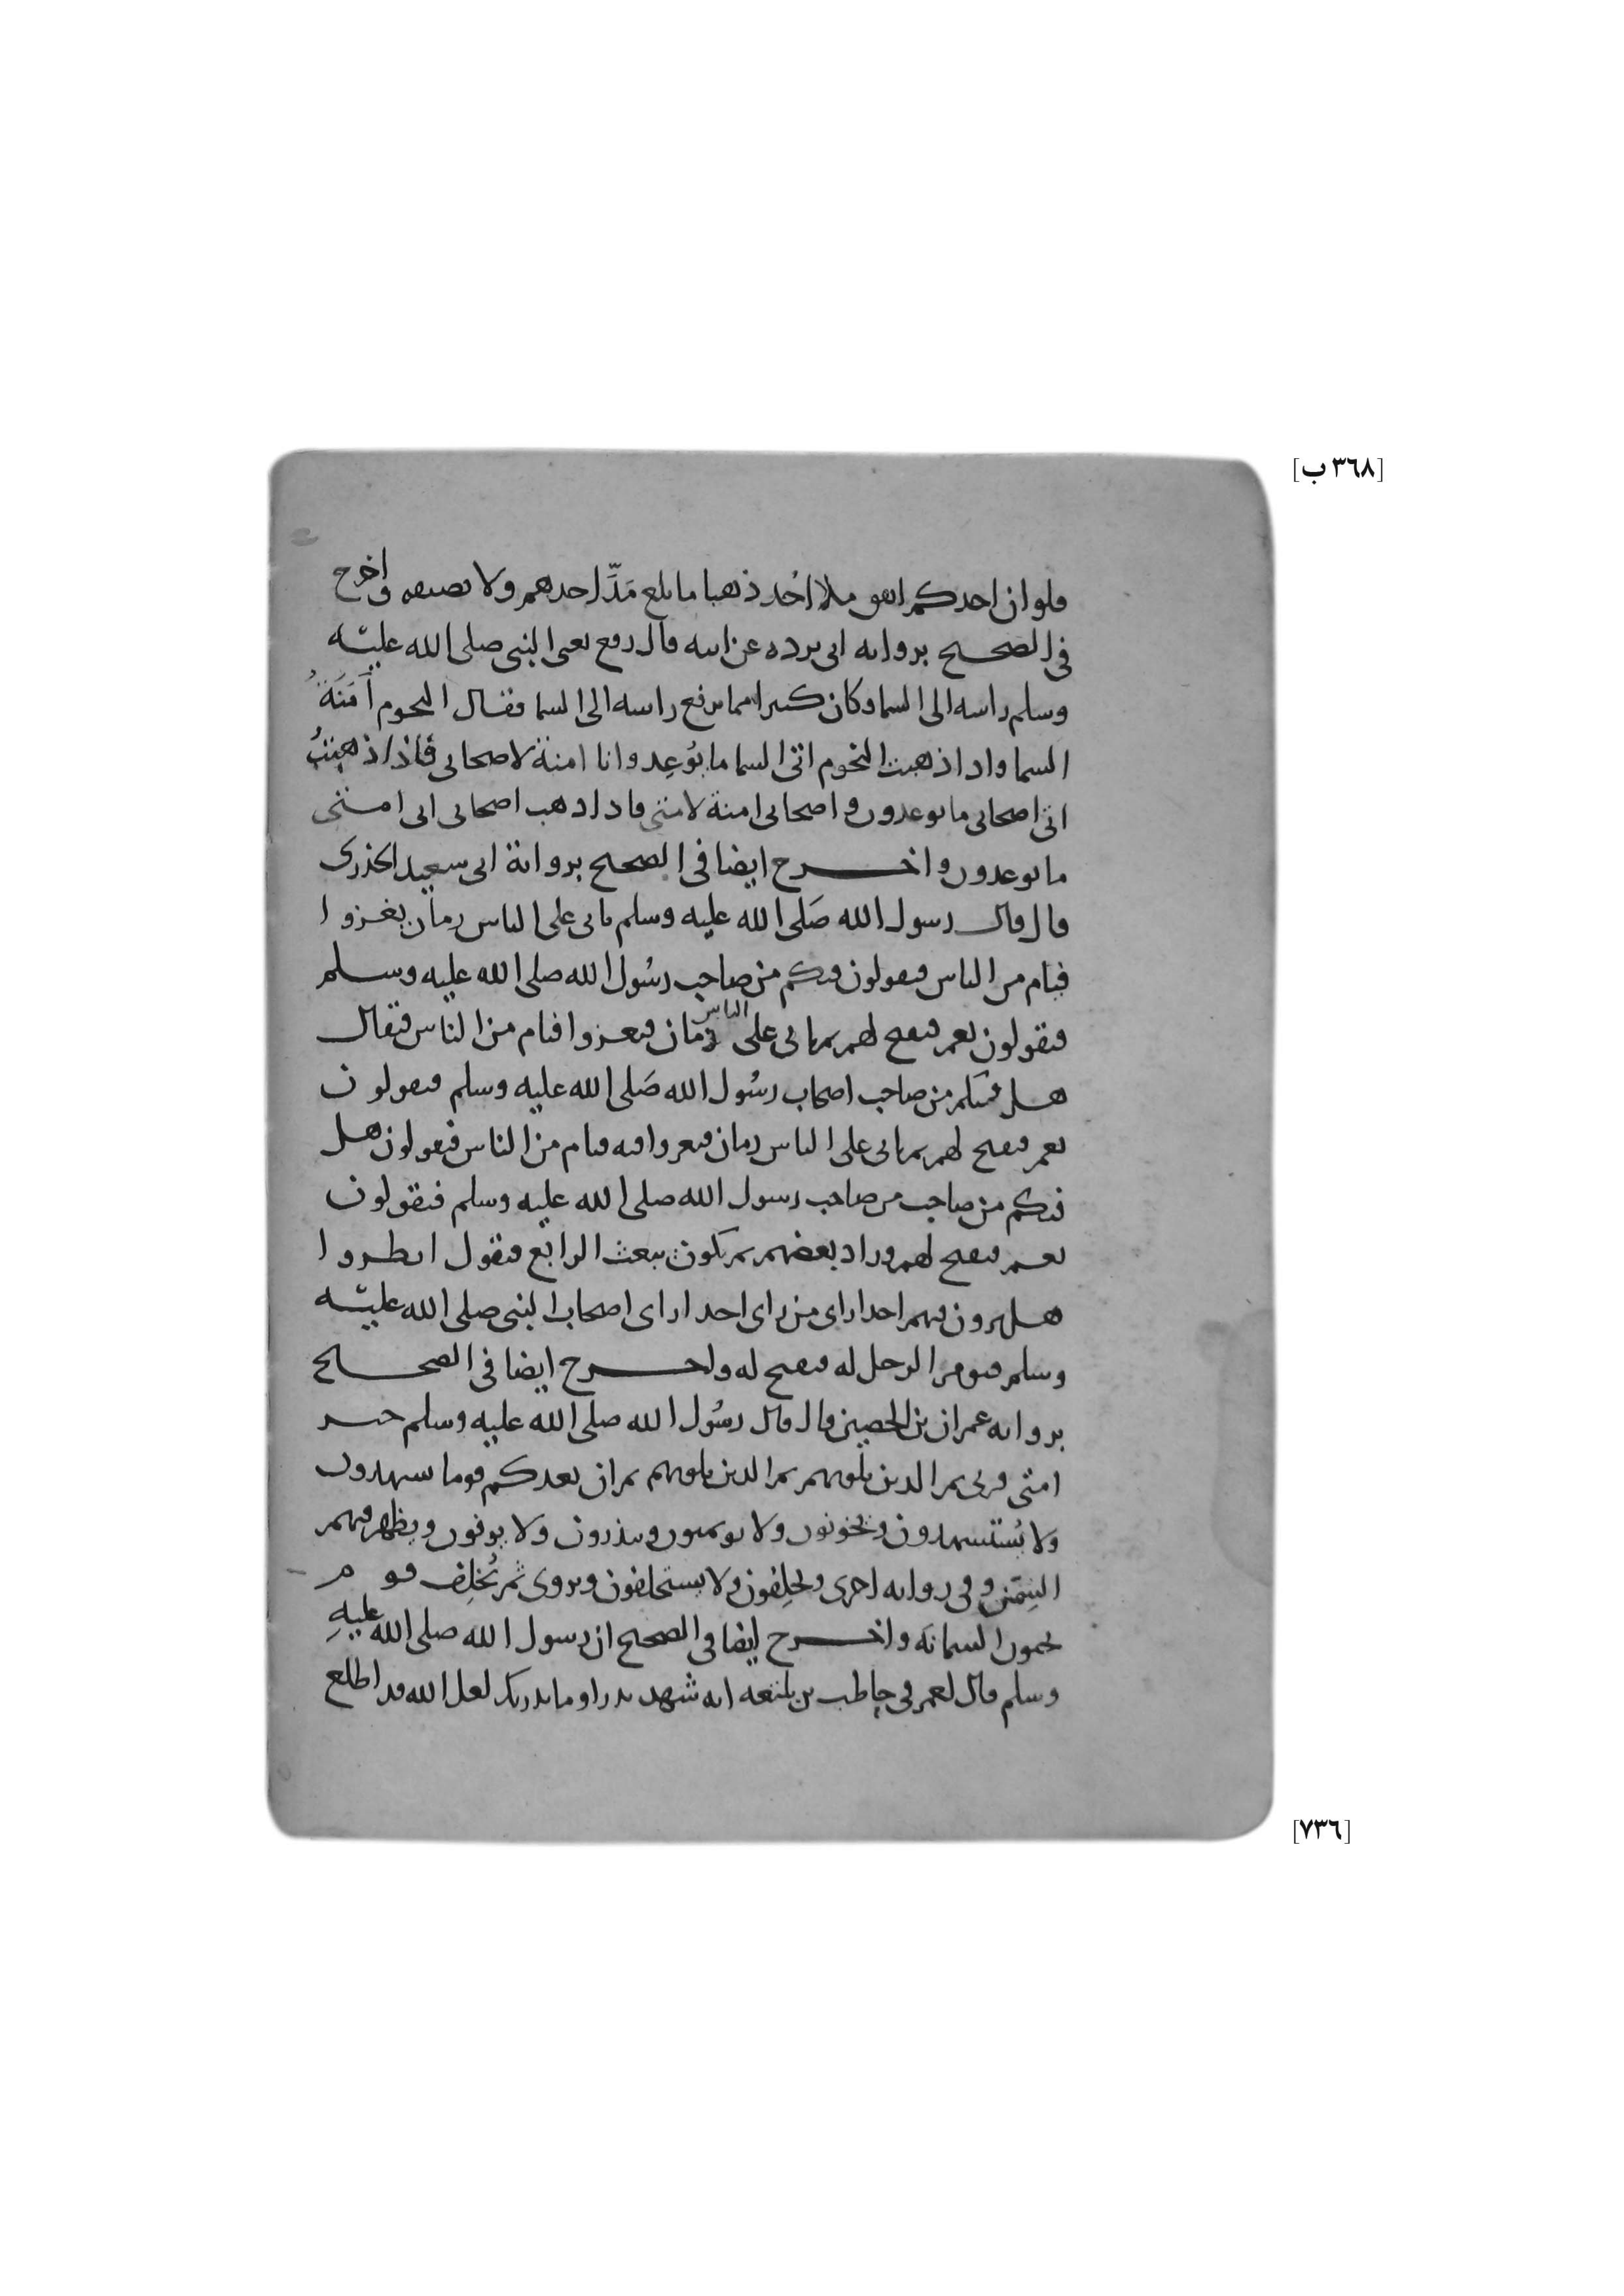 [٣٦٨ ب]
فلو ان احدكم انفق ملا اُحُد ذهبا ما بلغ مُدَّ احدهم ولا نصيفه واخرج
في الصحيح بروايه ابي برده عن ابيه قال رفع يعني النبي صلى الله عليه
وسلم راسه الى السما وكان كثيرا مما يرفع راسه الى السما فقال النجوم أَمَنَةُ
السما واذا ذهبت النجوم اتى السما ما تُوعد وانا امنة لاصحابي فاذا ذهبتُ
اتى اصحابي ما يوعدون واصحابي امنة لامتي فاذا ذهب اصحابي اتى امتي
ما يوعدون واخرج ايضا في الصحيح برواية ابي سعيد الخدري
قال قال رسول الله صَلى الله عليه وسلم ياتى على الناس زمان يغزوا
فيام من الناس فيقولون فيكم من صاحب رسُول الله صلى الله عليه وسلم
فيقولون نعم فيفتح لهم ثم ياتي على الناس زمان فيغزوا فيام من الناس فيقال
هل فيكم من صاحب اصحاب رسُول الله صَلى الله عليه وسلم فيقولون
نعم فيفتح لهم ثم ياتي على الناس زمان فيغزوا فيه فيام من الناس فيقولون هل
فيكم من صاحب من صاحب رسول الله صلى الله عليه وسلم فيقولون
نعم فيفتح لهم وزاد بعضهم ثم يكون يبعث الرابع فيقول انظروا
هل ترون فيهم احدا راى من راى احدا راى اصحاب النبي صلى الله عليه
وسلم فيوجد الرجل له فيفتح له واخرج ايضا في الصحيح
بروايه عمران بن الحصين قال قال رسُول الله صلى الله عليه وسلم خير
امتي قرني ثم الذين يلونهم ثم الذين يلونهم ثم ان بعدكم قوما يشهدون
ولا يُستشهدون ويخونون ولا يوتمنون وينذرون ولا يوفون ويظهر فيهم
السِمَن وفي روايه اخرى ويحلِفون ولا يستحلفون ويروى ثم يُخلِف قوم
يحبون السمانة واخرج ايضا في الصحيح ان رسول الله صلى الله عليهِ
وسلم قال لعمر في حاطب بن بلتعه انه شهد بدرا وما يدريك لعل الله قد اطلع
[٧٣٦]